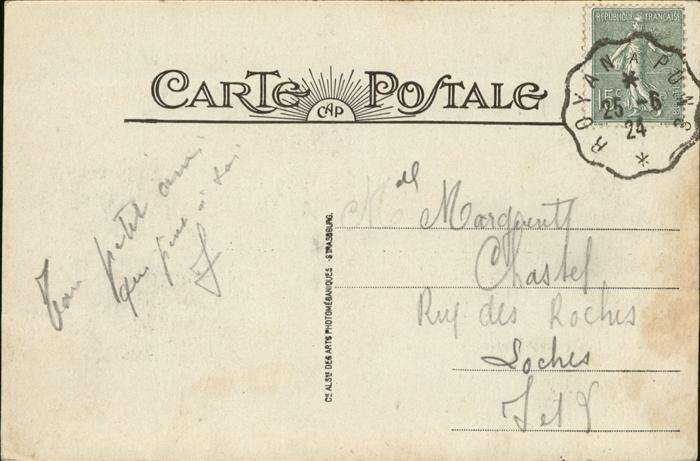 RÉPUBLIQUE FRANÇAISE
15c
ROYAN A PONS
25 -6
24
CARTE POSTALE
CAP
Ton petit ami
qui pense à toi
J
Mdl Marguerite
Chastel
Rue des Roches
Loches
I et L
Cie ALSne DES ARTS PHOTOMÉCANIQUES -STRASBOURG.